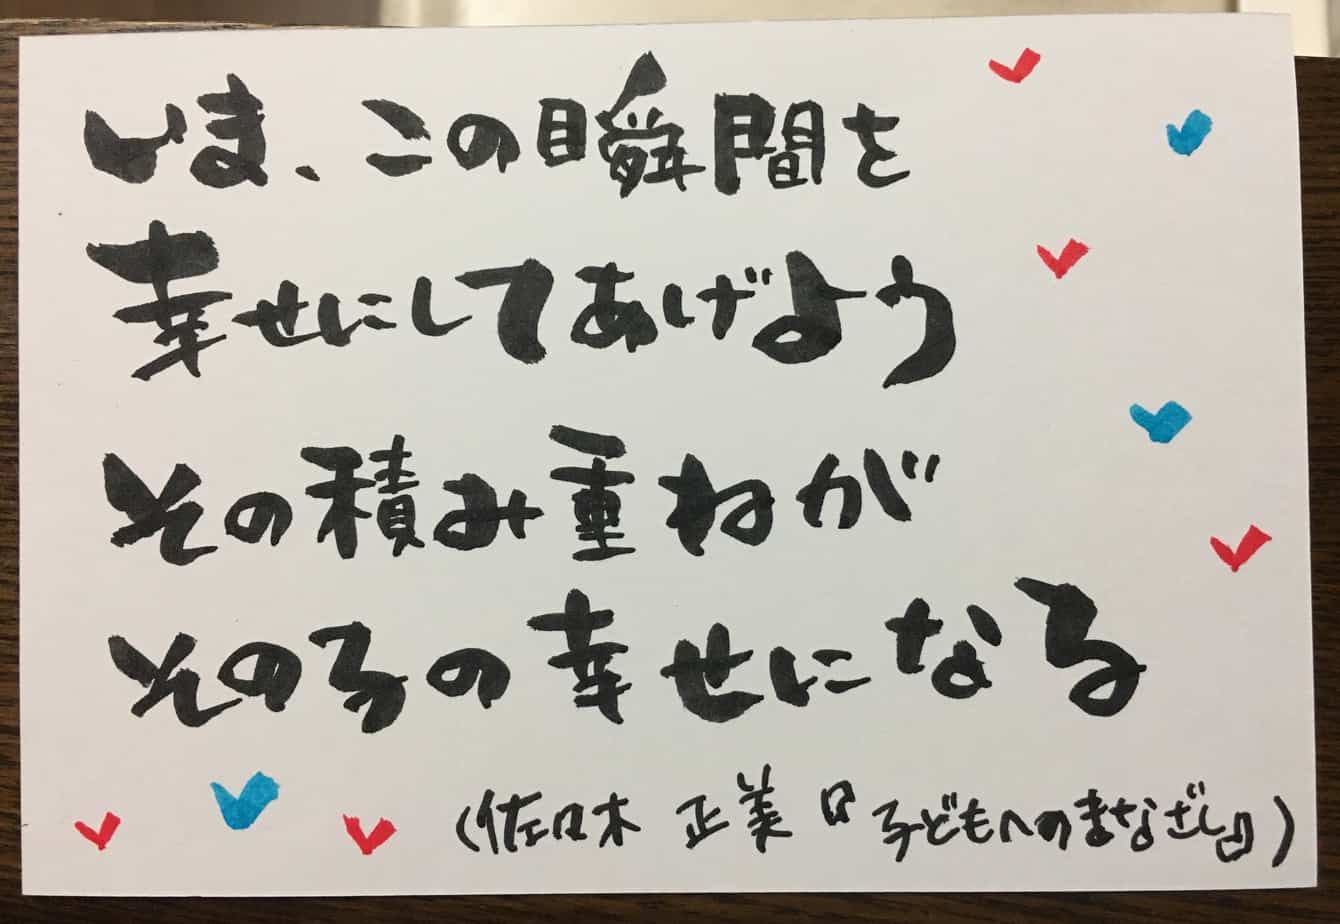 いま、この瞬間を
幸せにしてあげよう
その積み重ねが
その子の幸せになる
(佐々木 正美『子どもへのまなざし』)